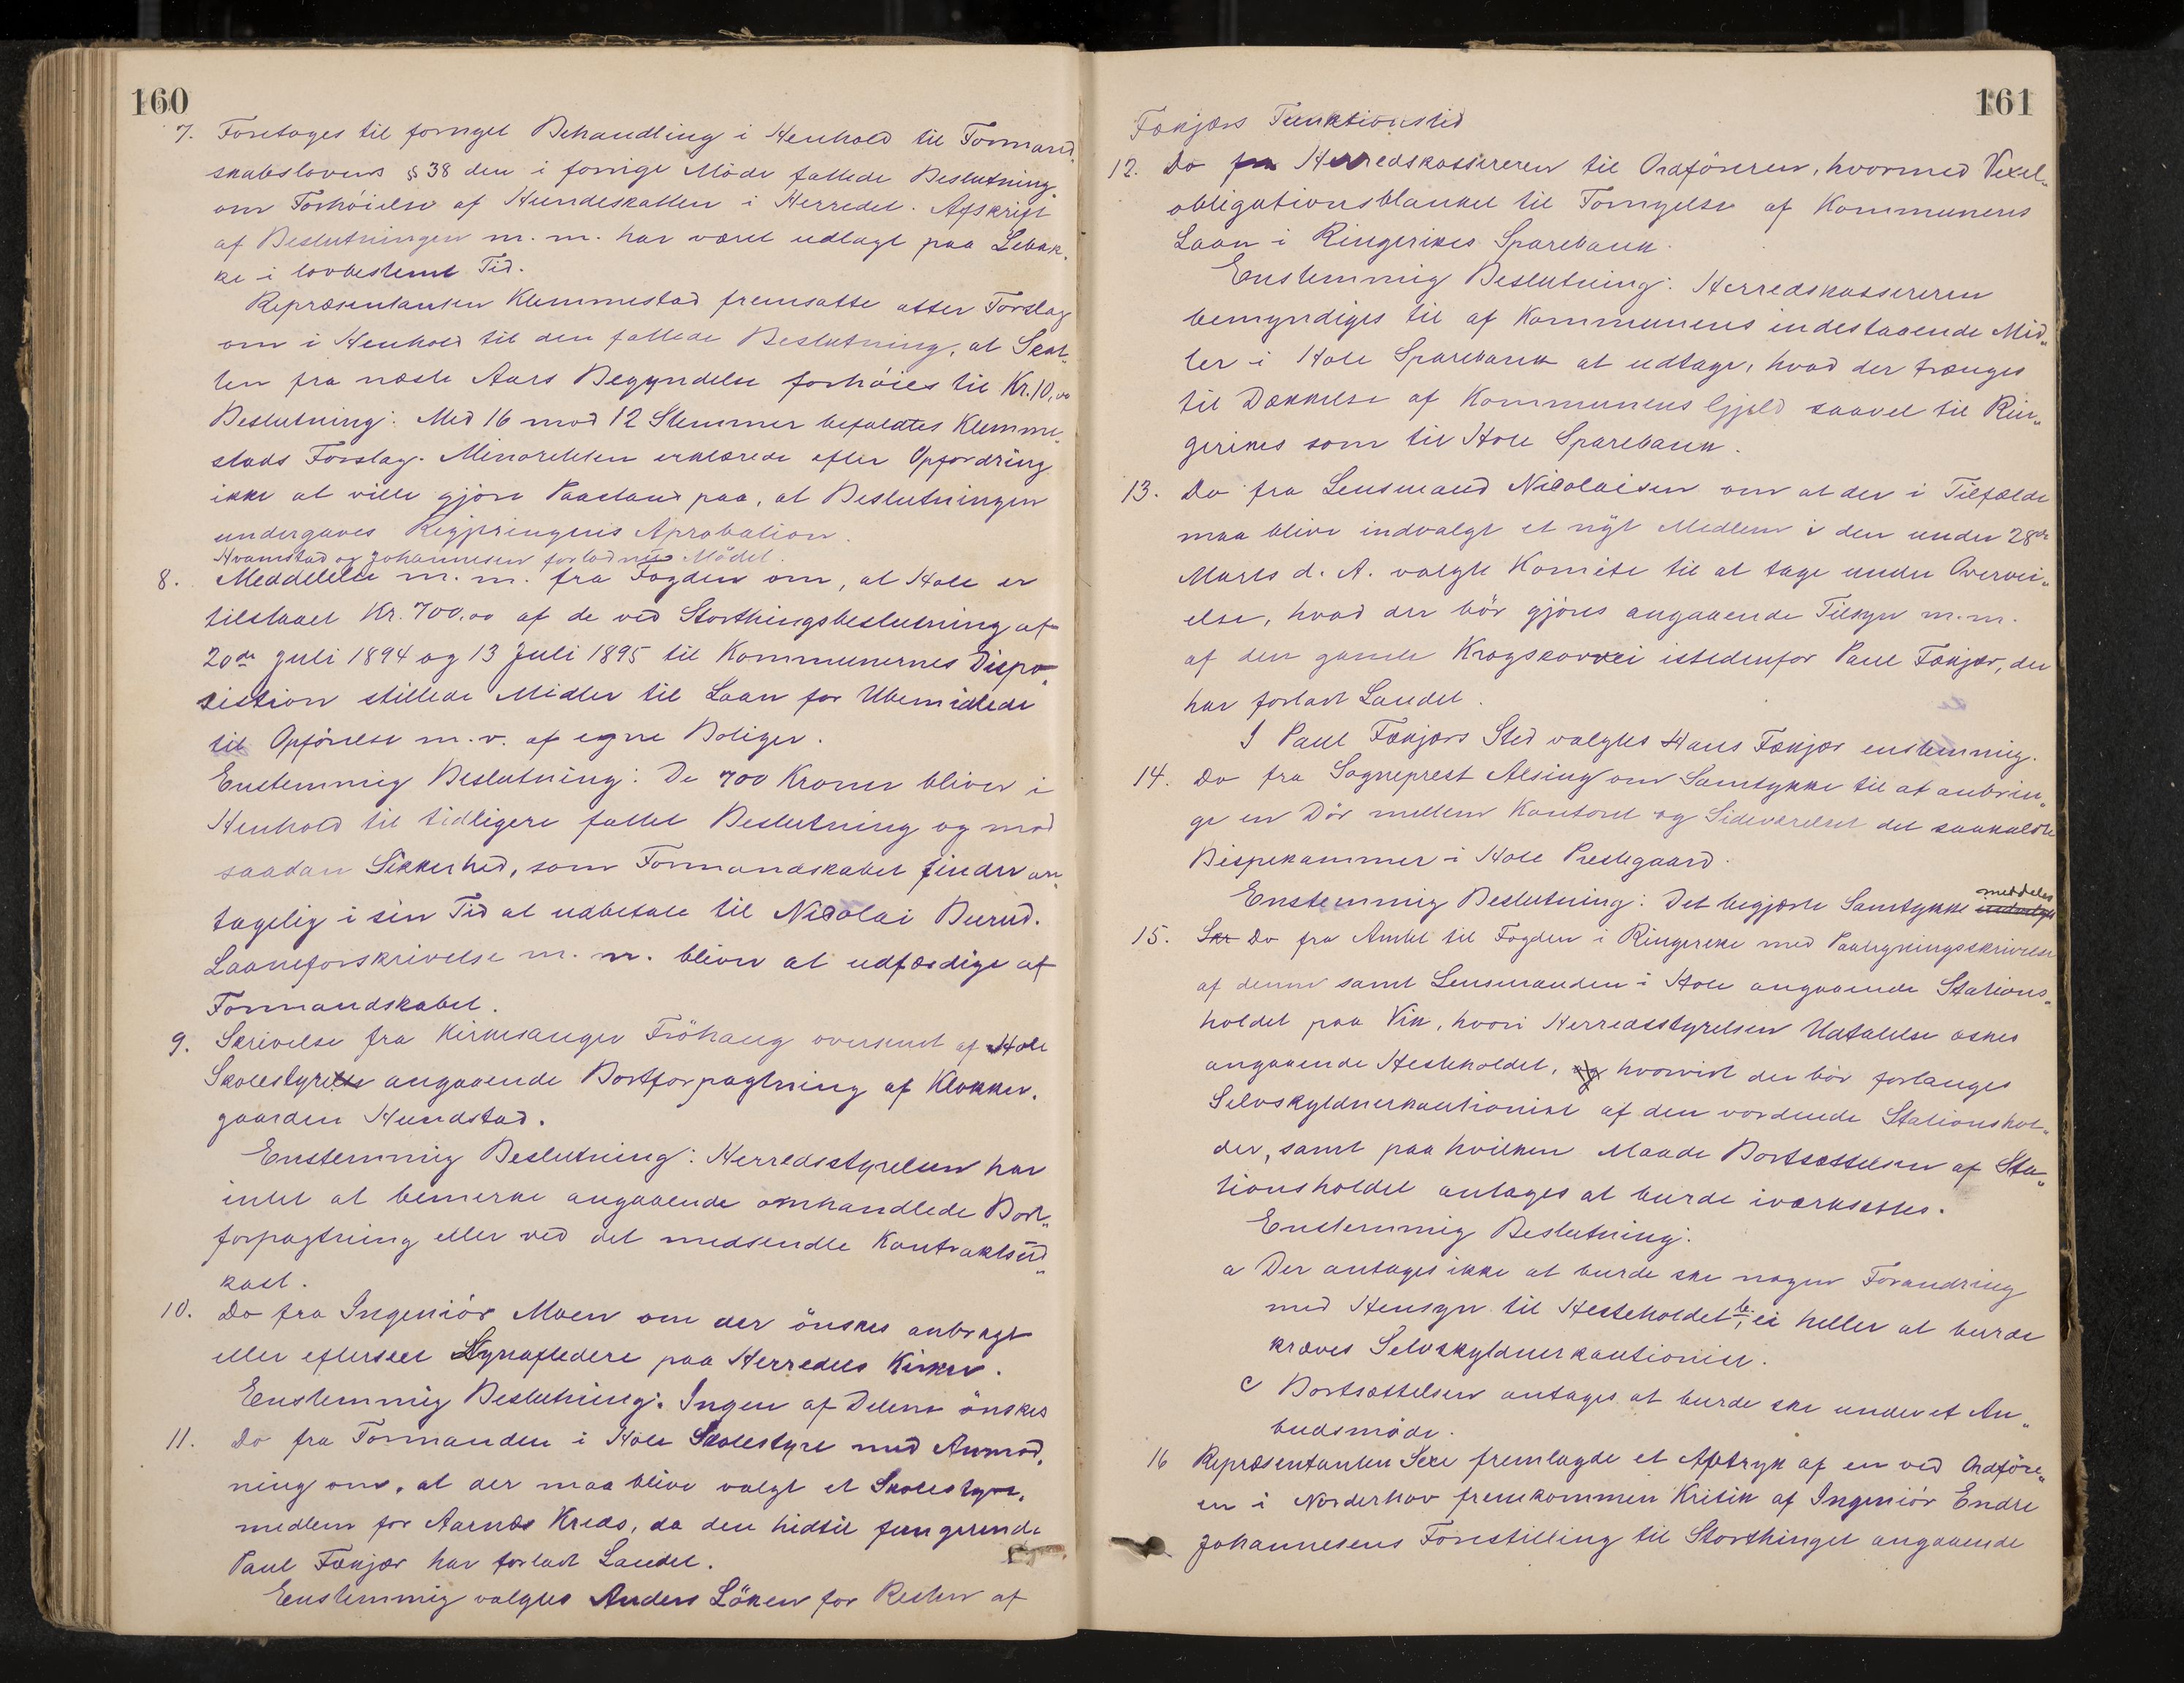 160
7. Foretages til fornyet Behandling i Henhold til Formand„
skabslovens § 38 den i forrige Møde fattede Beslutning
om Forhöielse af Hundeskatten i Herredet. Afskrift
af Beslutningen m. m. har været udlagt paa Lebak„
ke i lovbestemt Tid.
Repræsentanten Klemmestad fremsatte atter Forslag
om i Henhold til den fattede Beslutning, at Skat„
ten fra næste Aars Begyndelse forhöies til Kr. 10,00
Beslutning: Med 16 mod 12 Stemmer befaldtes Klemme„
stads Forslag. Minoriteten erklærede efter Opfordring
ikke at ville gjöre Paastand paa, at Beslutningen
undergaves Regjeringens Aprobation.
Hvamstad og Johannesen forlod nu Mödet.
8. Meddelelse m. m. fra Fogden om, at Hole er
tilstaaet Kr. 700,00 af de ved Storthingsbeslutning af
20de Juli 1894 og 13 Juli 1895 til Kommunernes Dispo„
sistion stillede Midler til Laan for Ubemidlede
til Opförelse m. v. af egne Boliger.
Enstemmig Beslutning: De 700 Kroner bliver i
Henhold til tidligere fattet Beslutning og mod
saadan Sikkerhed, som Formandskabet finder an„
tagelig i sin Tid at udbetale til Nicolai Burud.
Laaneforskrivelse m. m. bliver at udfærdige af
Formandskabet.
9. Skrivelse fra Kirkesanger Fröhaug oversendt af Hole
Skolestyre angaaende Bortforpagtning af Klokker„
gaarden Hundstad.
Enstemmig Beslutning: Herredsstyrelsen har
intet at bemerke angaaende omhandlede Bort„
forpagtning eller ved det medsendte Kontraktsud„
kast.
10. Do fra Ingeniör Moen om der önskes anbragt
eller efterseet Lynafledere paa Herredets Kirker.
Enstemmig Beslutning: Ingen af Delene önskes
11. Do fra Formanden i Hole Skolestyre med Anmod„
ning om, at der maa blive valgt et Skolestyre„
medlem for Aarnæs Kreds, da den hidtil fungerende
Paul Fækjær har forladt Landet.
Enstemmig valgtes Anders Löken for Resten af
161
Fækjærs Funktionstid
12. Do fra Herredskassereren til Ordföreren, hvormed Vexel„
obligationsblanket til Fornyelse af Kommunens
Laan i Ringerikes Sparebank.
Enstemmig Beslutning: Herredskassereren
bemyndiges til af Kommunens indestaaende Mid„
ler i Hole Sparebank at udtage, hvad der trænges
til Dækkelse af Kommunens Gjeld saavel til Rin„
gerikes som til Hole Sparebank.
13. Do fra Lensmand Nicolaisen om at der i Tilfælde
maa blive indvalgt et nyt Medlem i den under 28de
Marts d. A. valgte Komite til at tage under Overvei„
else, hvad der bör gjöres angaaende Tilsyn m. m.
af den gamle Krogskovvei istedenfor Paul Fækjær, der
har forladt Landet.
I Paul Fækjærs Sted valgtes Hans Fækjær enstemmig.
14. Do fra Sogneprest Alsing om Samtykke til at anbrin„
ge en Dör mellem Kontoret og Sideværelset det saakaldte
Bispekammer i Hole Prestegaard.
Enstemmig Beslutning: Det begjærte Samtykke meddeles
15. Skr Do fra Amtet til Fogden i Ringerike med Paategningsskrivelse
af denne samt Lensmanden i Hole angaaende Stations„
holdet paa Vik, hvori Herredsstyrelsen Udtalelse æskes
angaaende Hesteholdet, og hvorvidt der bör forlanges
Selvskyldnerkautionist af den vordende Stationshol„
der, samt paa hvilken Maade Bortsættelsen af Sta„
tionsholdet antages at burde iværksættes.
Enstemmig Beslutning:
a Der antages ikke at burde ske nogen Forandring
med Hensyn til Hesteholdet, b. ei heller at burde
kræves Selvskyldnerkautionist.
c Bortsættelsen antages at burde ske under et An„
budsmöde.
16 Repræsentanten fremlagde et Aftryk af en ved Ordföre„
en i Norderhov fremkommen Kritik af Ingeniör Endre
Johannesens Forestilling til Storthinget angaaende